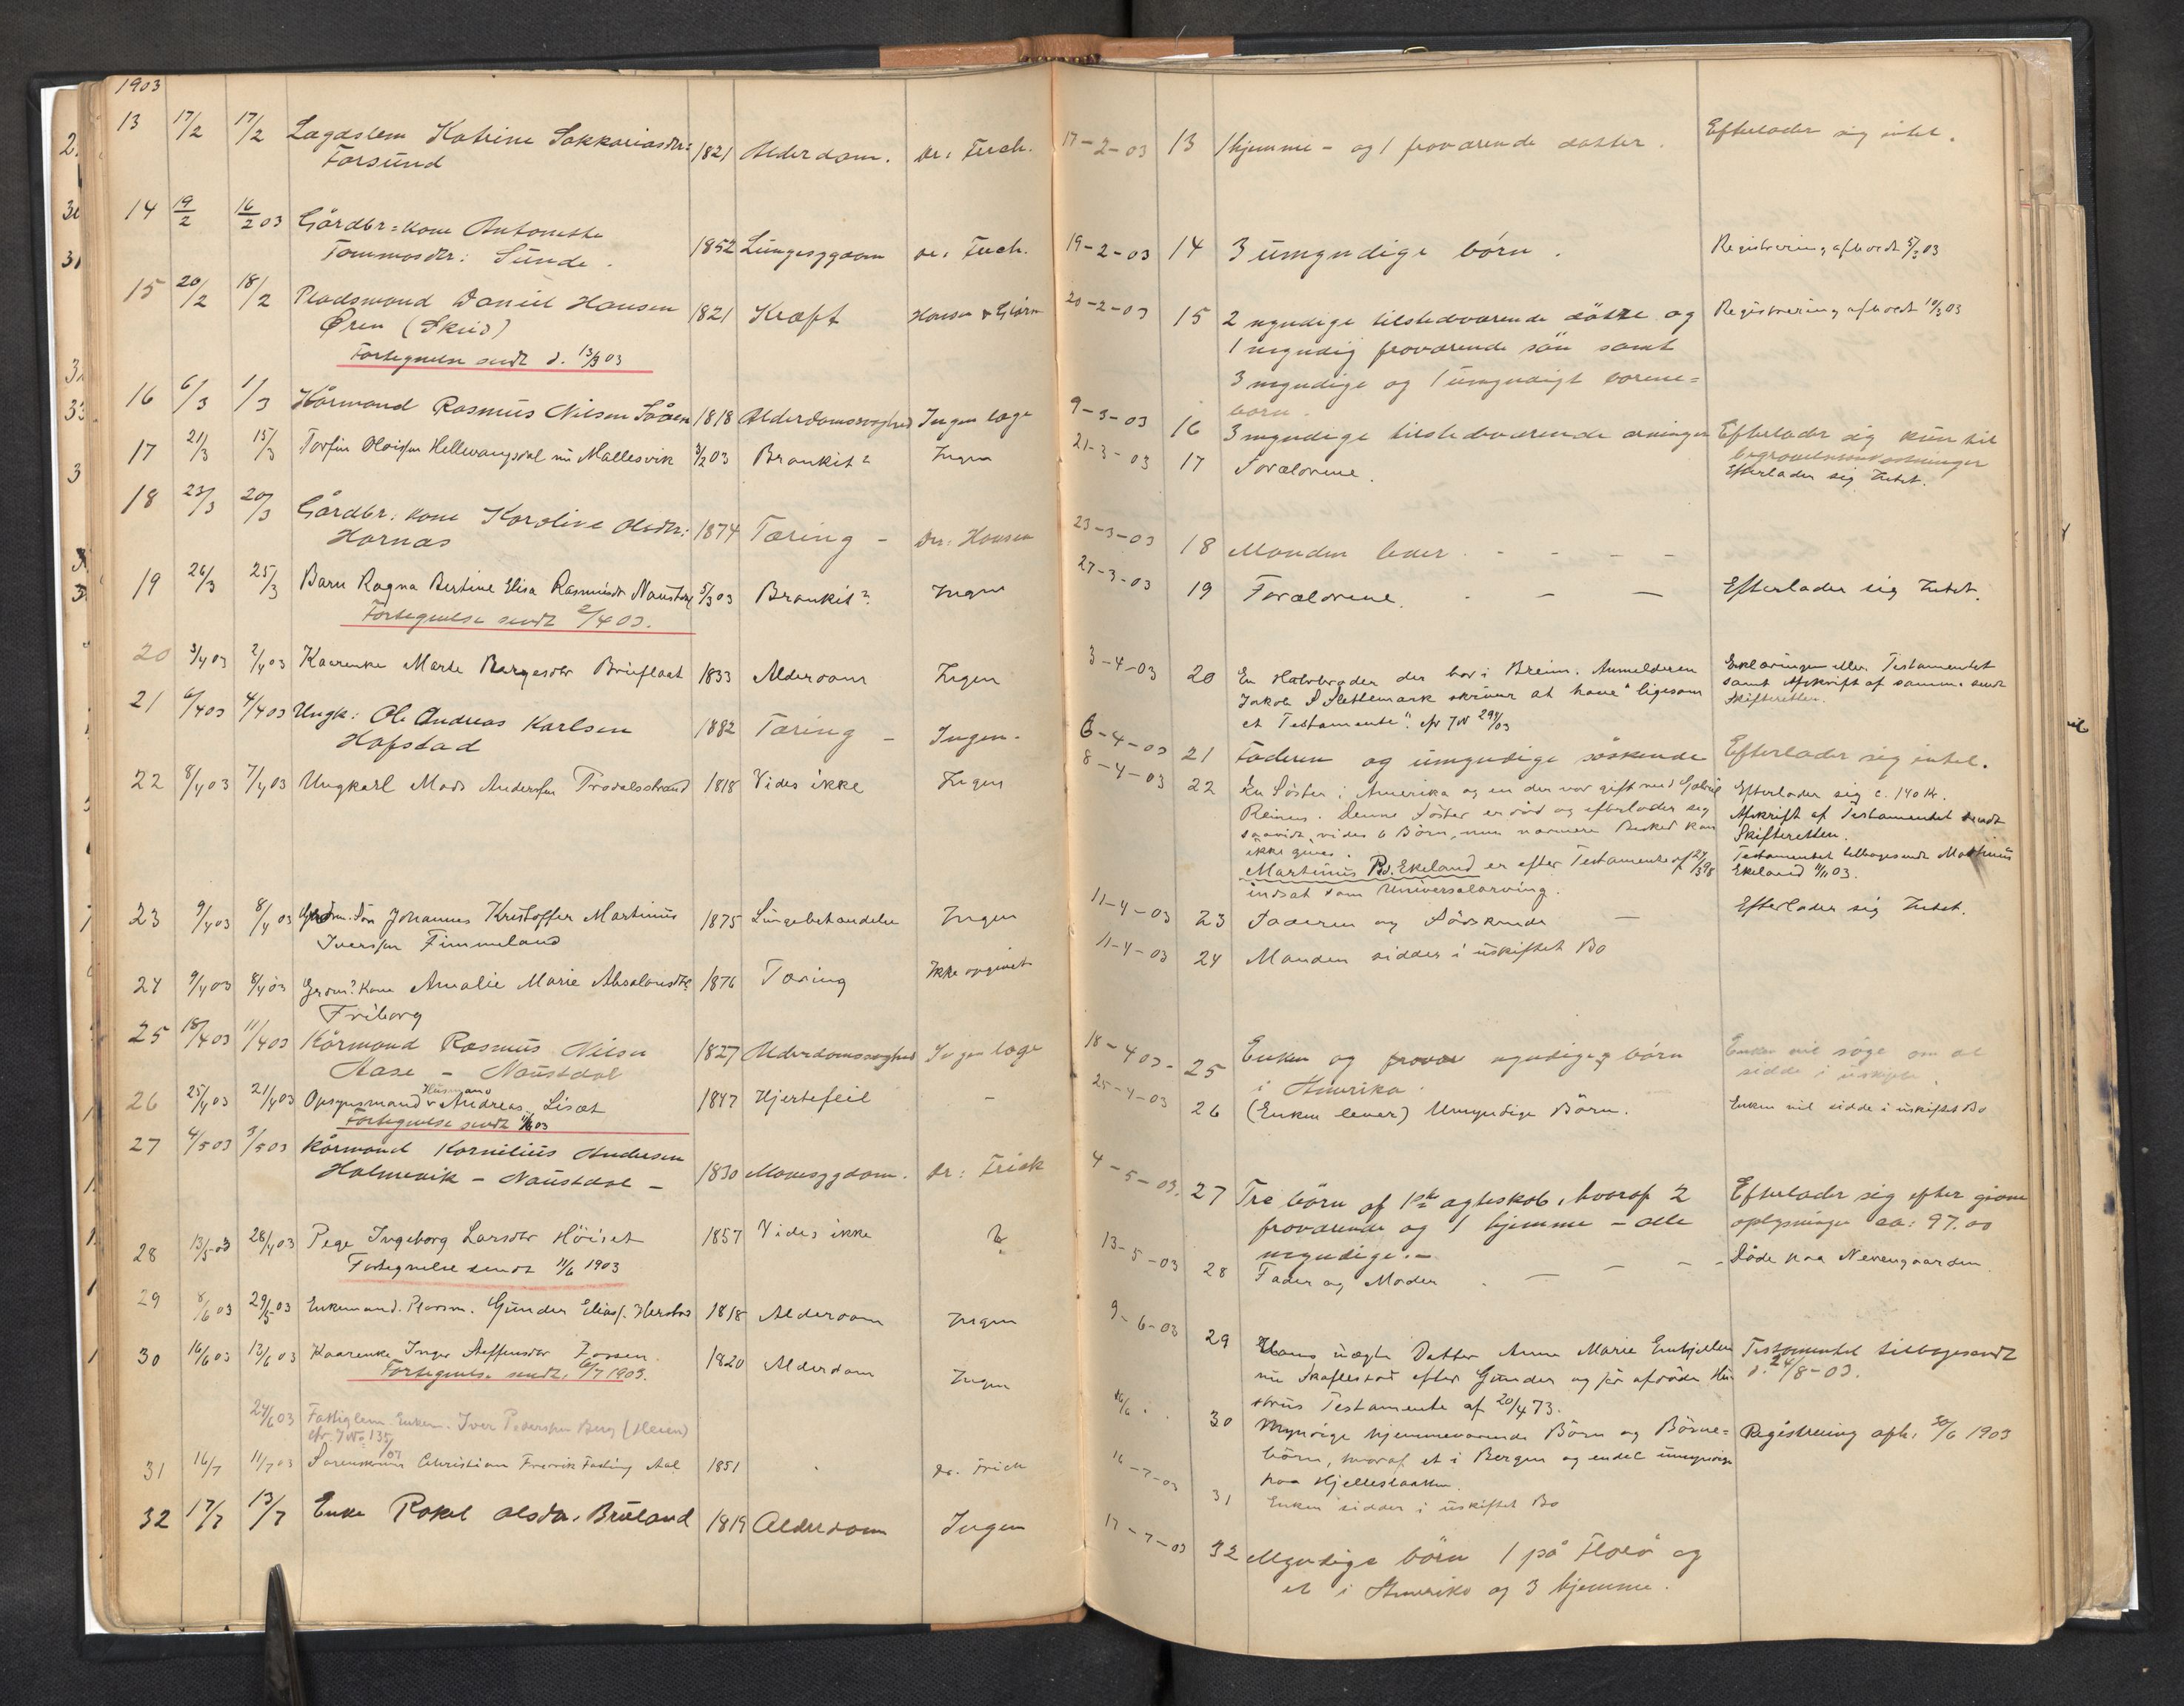 1903
13 17/2 17/2 Lægdslem Katrine Sakkariasdtr: 1821 Alderdom. Dr: Frich.
Førsund
14 19/2 16/2 03 Gårdbr=kone Antonette
Tommasdtr: Sunde. 1852 Lungesygdom Dr: Frich.
15 20/2 18/2 Pladsmand Daniel Hansen 1821 Kræft Hansen &
Øren (Skeid)
Fortegnelse sendt d. 13/3 03
16 6/3 1/3 Kårmand Rasmus Nilsen 1818 Alderdomssvaghed Ingen læge
17 21/3 15/3 Torfin Hellevangsdal nu Mallesvik 3/2 03 Bronkit? Ingen
18 23/3 20/3 Gårdbr: kone Karoline Olsdtr: 1874 Tæring - Dr: Hansen
Hornæs
19 26/3 25/3 Barn Ragna Bertine Elisa Rasmusdtr Naustdal 5/3 03 Bronkit?. Ingen
Fortegnelse sendt 2/4 03.
20 3/4 03 2/4 03 Kaarenke Marte 1833 Alderdom Ingen
21 6/4 03 4/4 03 Ungk: Ole Andreas Karlsen 1882 Tæring - Ingen.
Hafstad
22 8/4 03 7/4 03 Ungkarl Mads Anderssen 1818 Vides ikke Ingen
23 9/4 03 8/4 03 Søn Johannes Kristoffer Martinus 1875 Lungebetændelse Ingen
Iverssen Fimmeland
24 9/4 03 8/4 03 Kone Amalie Marie Absalonsdtr 1876 Tæring Ikke opgivet
Friborg
25 18/4 03 11/4 03 Kårmand Rasmus Nilsen 1827 Alderdomssvaghed Ingen læge
Aase - Naustdal
Husmand
26 25/4 03 21/4 03 Opsynsmand & Andreas Lisæt 1847 Hjertefeil -
Fortegnelse sendt 11/6 03
27 4/5 03 3/5 03 Kårmand Kornelius Andersen
Holmevik - Naustdal - 1830 Mavesygdom. Dr: Frich
28 13/5 03 28/4 03 Pege Ingeborg Larsdtr Høiset 1857 Vides ikke
Fortegnelse sendt 11/6 1903
29 8/6 03 29/5 03 Enkemand. Pladsm. Gunder Eliass. 1818 Alderdom Ingen
30 16/6 03 13/6 03 Kaarenke Inger Steffensdtr 1820 Alderdom Ingen
Fortegnelse sendt, 6/7 1903.
24/6 03 Fattiglem Enkem. Iver Pederssen Berg (Heien)
cfr. JNo 135/03
31 16/7 11/7 03 Christian Fredrik 1851 Dr. Frich
32 17/7 13/7 Enke Rakel Olsdtr. Bruland 1819 Alderdom Ingen
17-2-03 13 1 hjemme- og 1 fraværende datter. Efterlader sig intet.
19-2-03 14 3 umyndige børn. Registrering afholdt 5/3 03
20-2-03 15 2 myndige tilstedværende døtre og Registrering afholdt 10/3 03
1 myndig fraværende søn samt
3 myndige og 1 umyndigt barne=
børn.
9-3-03 16 3 myndige tilstedværende arvinger Efterlader sig kun til
begravelsesomkostninger
21-3-03 17 Forældrene. Efterlader sig Intet.
23-3-03 18 Manden lever. - - - -
27-3-03 19 Forældrene. - - - Efterlader sig Intet.
3-4-03 20 En Halvbroder der bor i Breim. Anmelderen Erklæringen eller Testamentet
Jakob S Slettemark skriver at have "ligesom samt Afskrift af samme sendt
et Testamente". cfr JN 294/03 Skifteretten.
6-4-03 21 Faderen og umyndige søskende Efterlader sig intet.
8-4-03 22 En Søster i Amerika og en der var gift med Gabriel Efterlader sig c. 140 Kr.
Reinen. Denne Søster er død og efterlader sig Afskrift af Testamentet sendt
saavidt vides 6 Børn, men nærmere Besked kan Skifteretten.
ikke gives. Testamentet tilbagesendt Martinus
Martinus Ekeland er efter Testamente af Ekeland 11/11 03.
indsat som Universalarving.
11-4-03 23 Faderen og Sødskende - Efterlader sig Intet.
11-4-03 24 Manden sidder i uskiftet Bo
18-4 03- 25 Enken og myndige børn Enken vil søge om at
i Amerika. sidde i uskifte.
25-4-03 26 (Enken lever) Umyndige Børn. Enken vil sidde i uskiftet Bo
4-5-03. 27 Tre børn af 1ste ægteskab, hvoraf 2 Efterlader sig efter givne
fraværende og 1 hjemme - alle oplysninger ca: 97.00
myndige.-
13-5-03 28 Fader og Moder - - - - Døde paa Nevengaarden.
9-6-03 29 Hans uægte Datter Anne Marie Testamentet tilbagesendt
nu efter Gunder og før afdøde Hu- d. 24/8-03.
strus Testamente af 20/4 73.
16/6 30 Myndige hjemmeværende Børn og Børne= Registrering afh. 30/6 1903
børn, hvoraf et i Bergen og endel umyndige
paa
16-7-03 31 Enken sidder i uskiftet Bo
17-7-03 32 Myndige børn 1 på Florø og
et i Amerika og 3 hjemme.